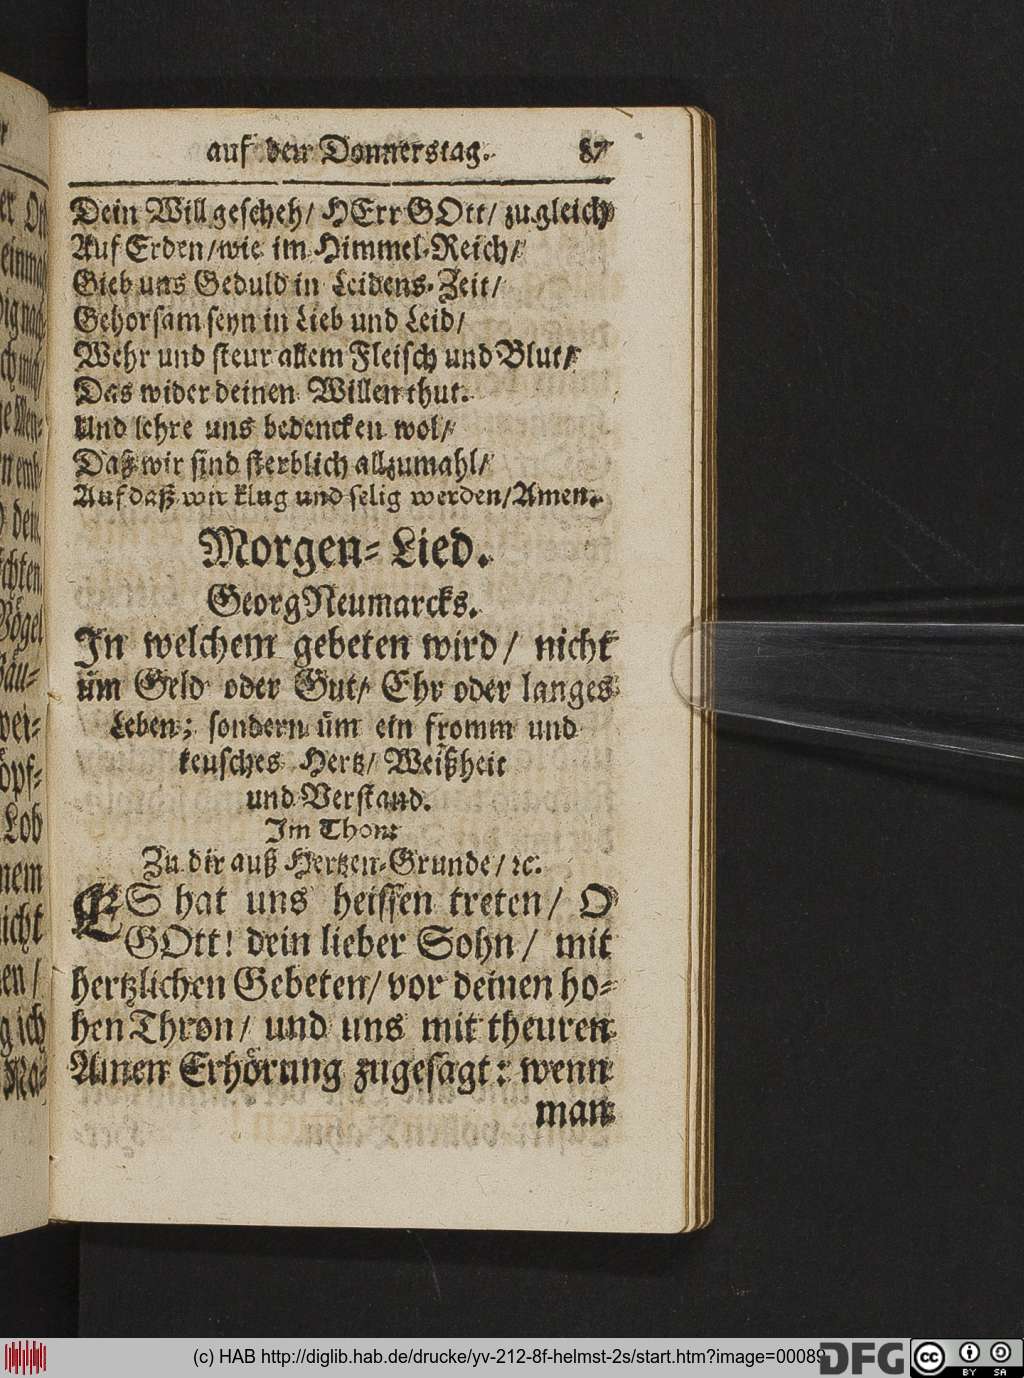 auf den Donnerstag. 87
Dein Will gescheh/ HErr GOtt/ zugleich
Auf Erden/ wie im Himmel-Reich/
Gieb uns Geduld in Leidens-Zeit/
Gehorsam seyn in Lieb und Leid/
Wehr und steur allem Fleisch und Blut/
Das wider deinen Willen thut.
Und lehre uns bedencken wol/
Daß wir sind sterblich allzumahl/
Auf daß wir klug und selig werden/ Amen.
Morgen-Lied.
Georg Neumarcks.
In welchem gebeten wird/ nicht
üm Geld oder Gut/ Ehr oder langes
Leben; sondern üm ein fromm und
keusches Hertz/ Weißheit
und Verstand.
Im Thon:
Zu dir auß Hertzen-Grunde/ ꝛc.
ES hat uns heissen treten/ O
GOtt! dein lieber Sohn/ mit
hertzlichen Gebeten/ vor deinen ho-
hen Thron/ und uns mit theuren
Amen Erhörung zugesagt: wenn
man
einmah
dig nach
ich mich/
den
Vögel
Lob
nicht
(c) HAB http://diglib.hab.de/drucke/yv-212-8f-helmst-2s/start.htm?image=00089
DFG
cc BY SA